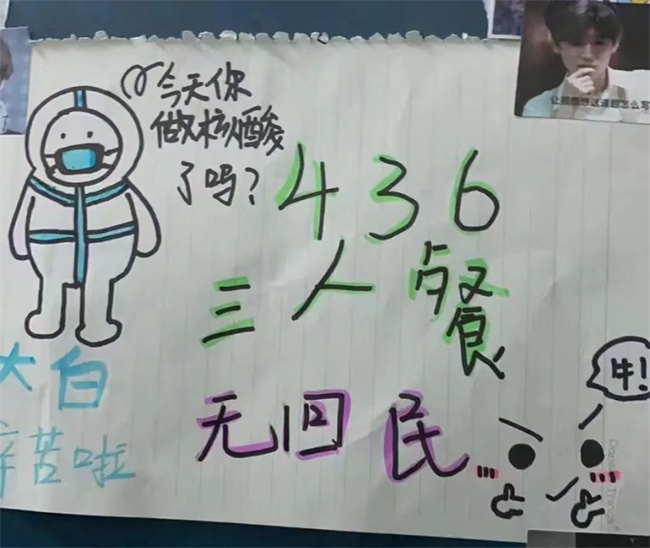 今天你
做核酸
了吗?
436
三人餐
无回民
大白
辛苦啦
牛!
让我想想这道题怎么写